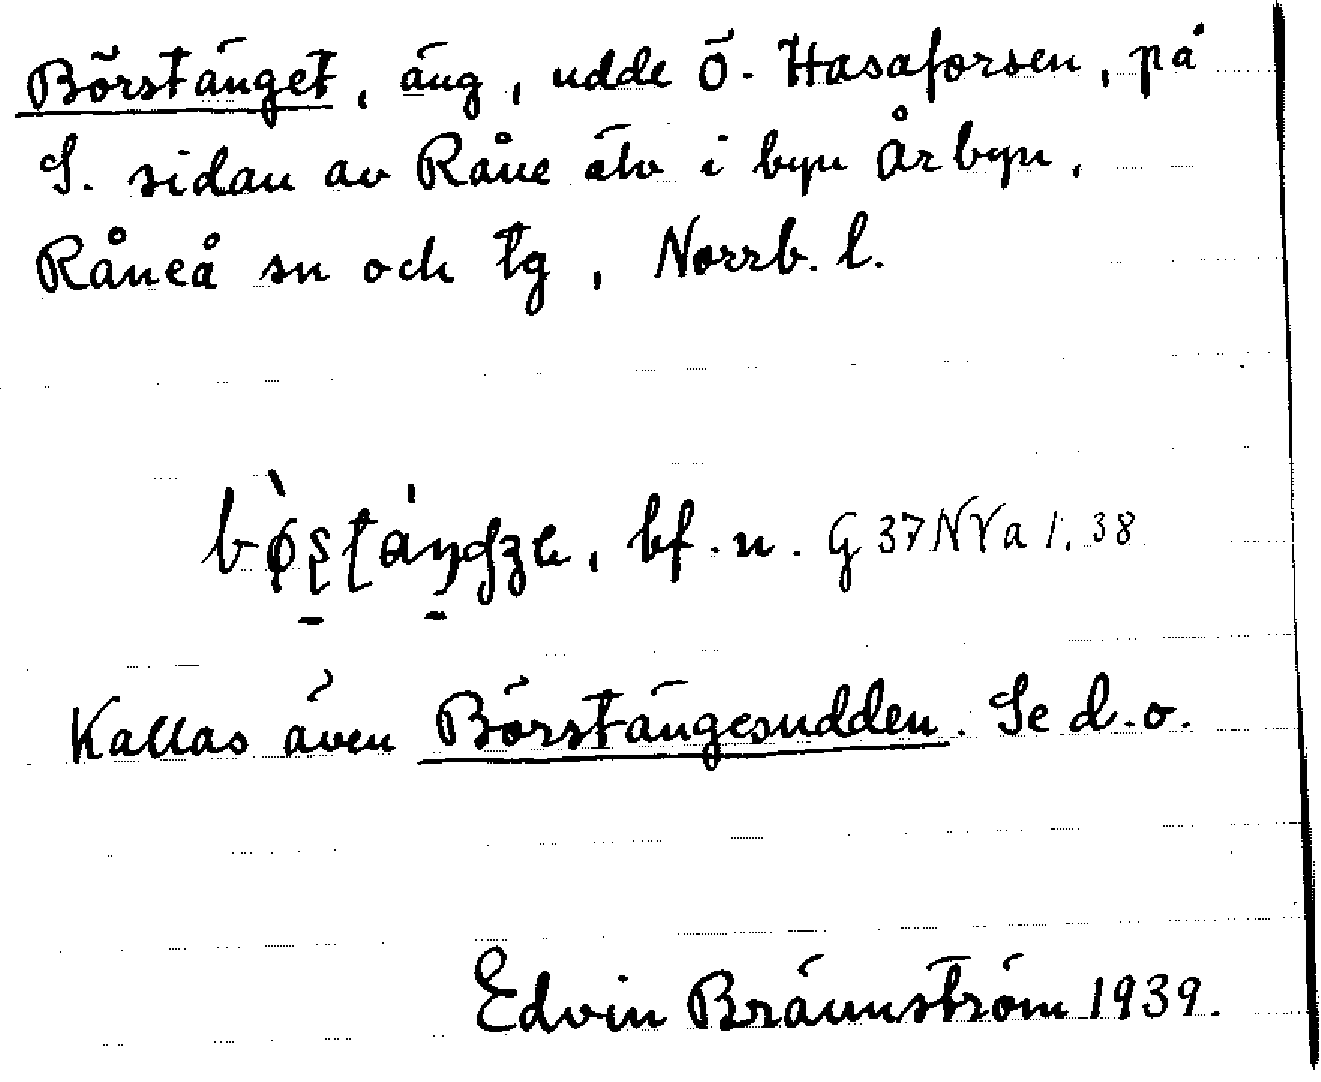 Börstänget, äng, udde Ö. Hasaforsen, på
S. sidan av Råne älv i byn Årbyn,
Råneå sn och tg, Norrb. l.
bf. n. G 37 NVa 1. 38
Kallas även Börstängesudden. Se d. o.
Edvin Brännström 1939.